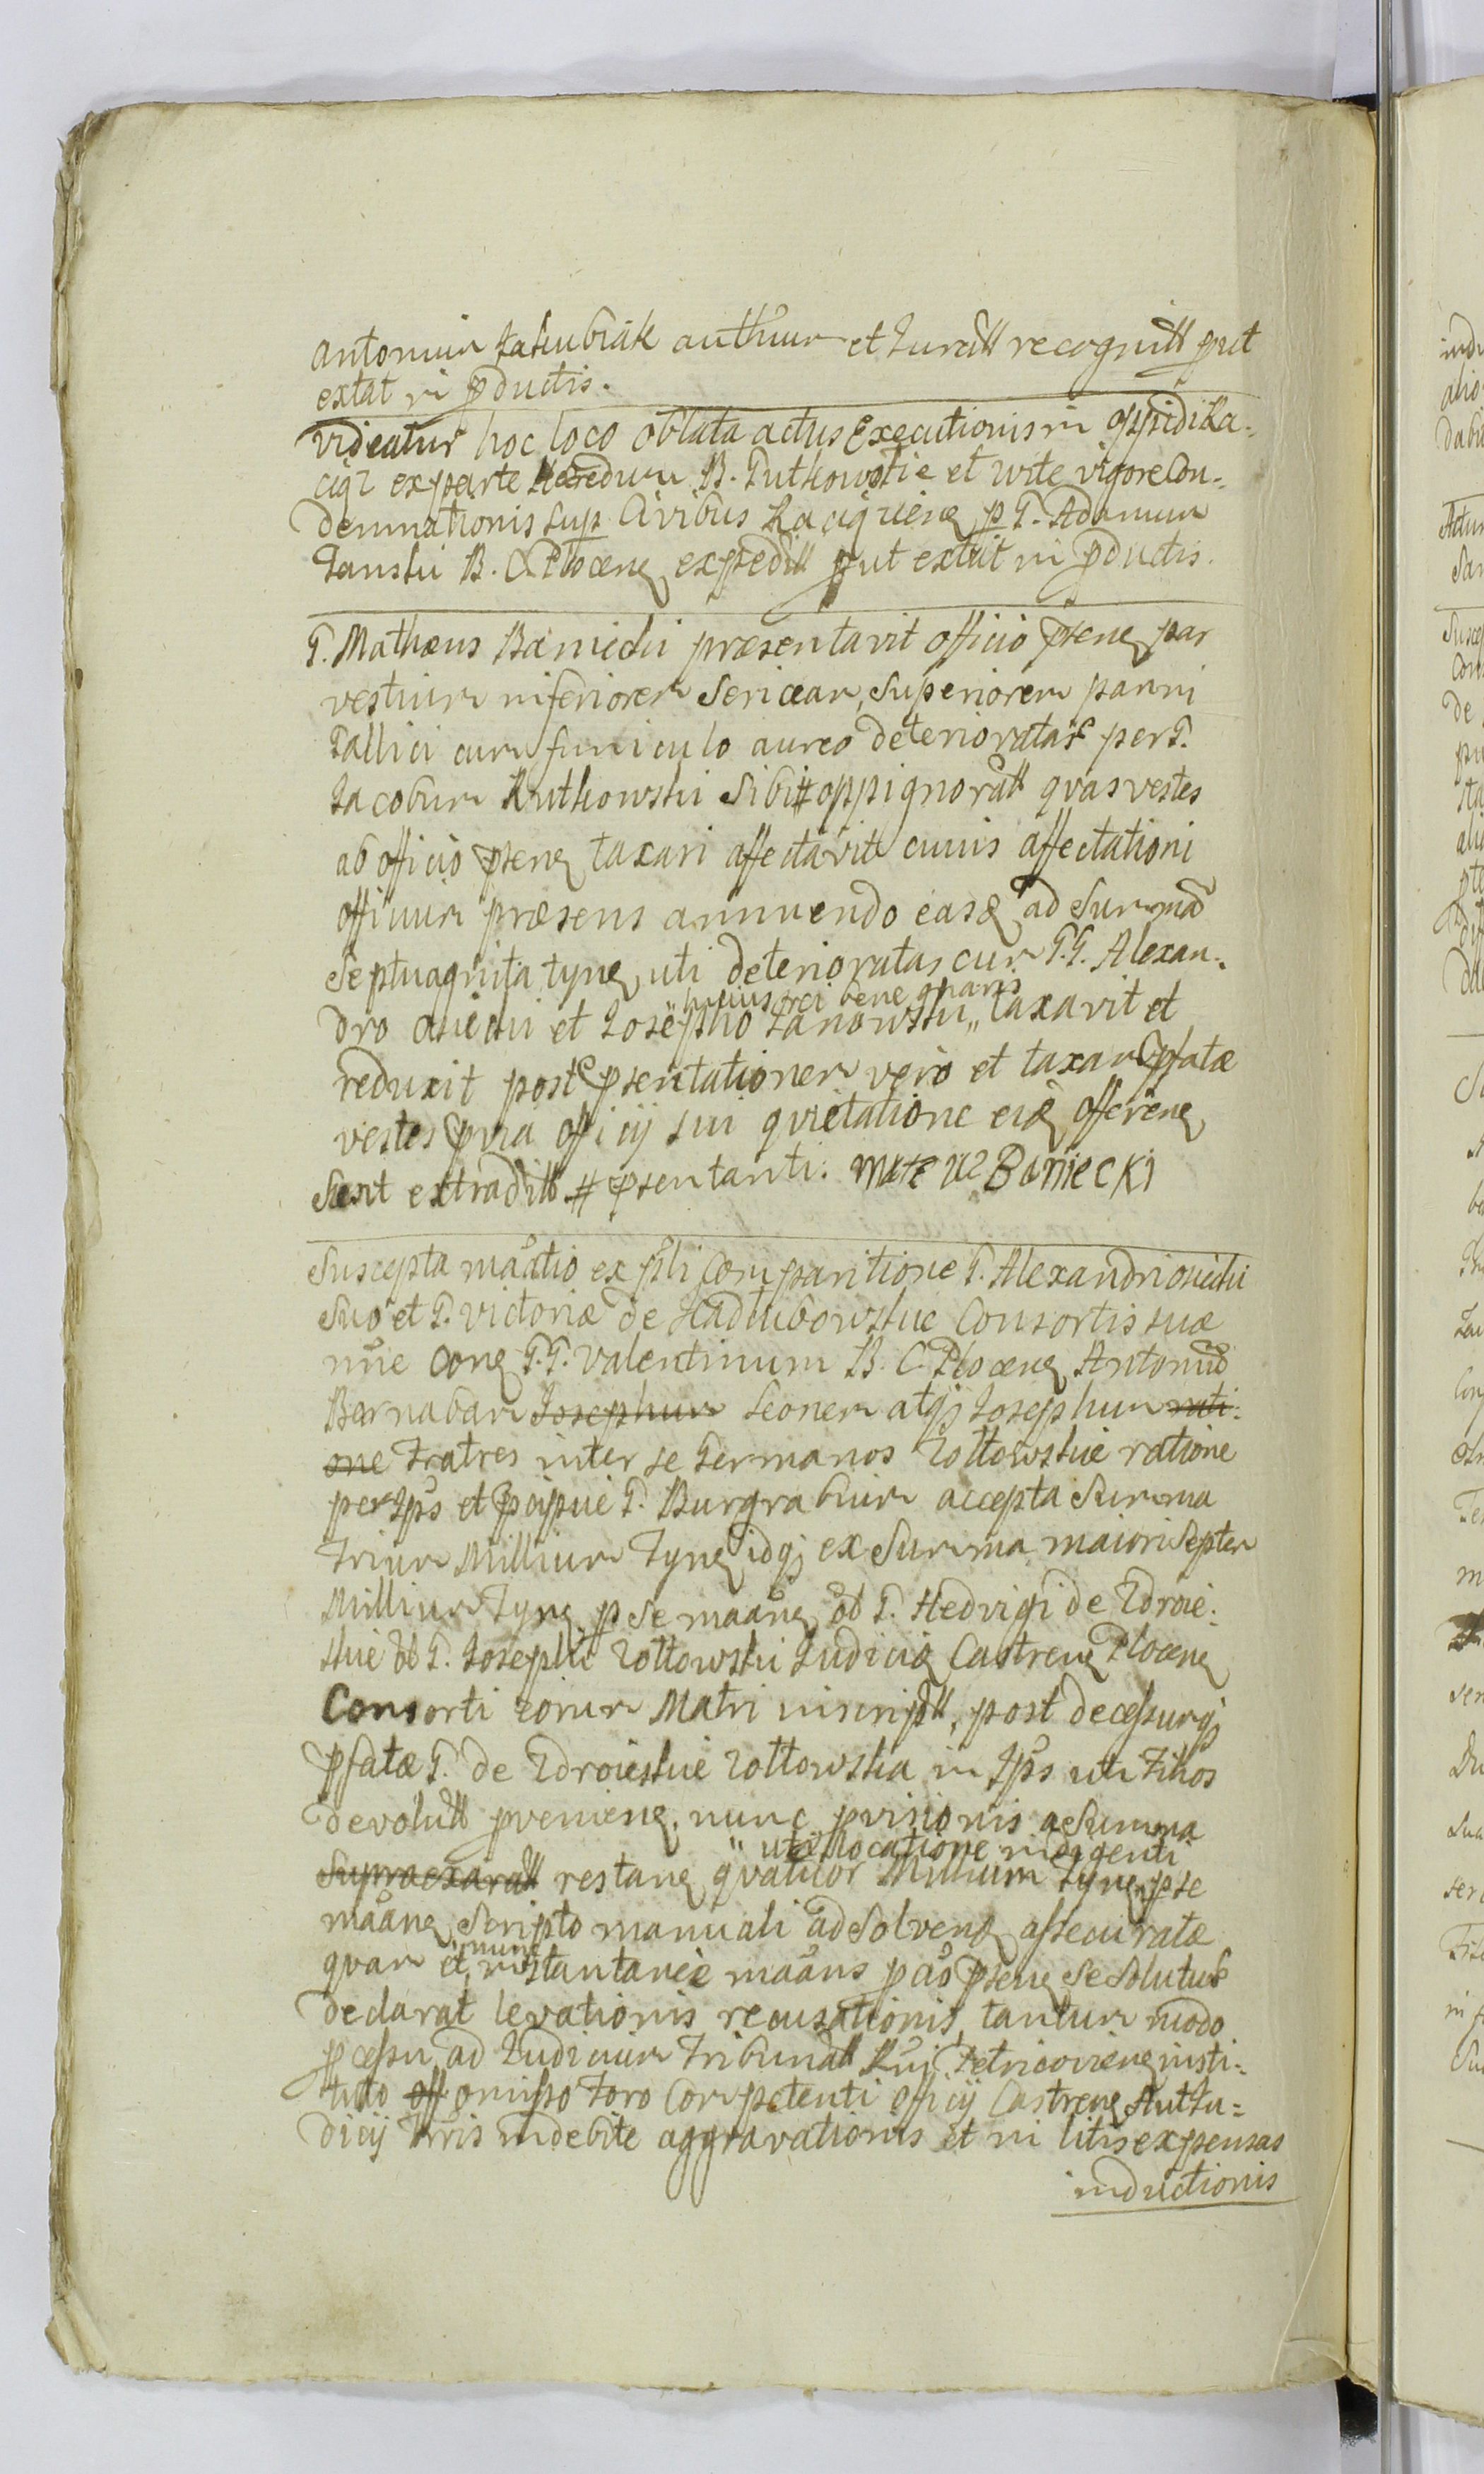 Antonium Jakubiak authum et Juratt recognitt put
extat in pductis.
Videatur hoc loco oblata actus Executionis in oppidi Ra-
ciąż ex parte Haeredum B. Rutkowskie et rite vigore Con-
demnationis sup Civibus Raciążieng p G. Adamum
Janski B. C. Ploceng expeditt put extat in pductis.
G. Mathaeus Baniecki praesentavit officio pseng par
vestium inferiorem Sericeam, Superiorem panni
Gallici cum funiculo aureo deterioratas per G.
Jacobum Rutkowski Sibi oppignoratt quas vestes
ab officio pseng taxari affectavit cuius affectationi
officium praesens annuendo easq ad Summã
Septuaginta tyng uti deterioratas cum G.G. Alexan-
huius rei bene gnaris
dro Osiecki et Josepho Janowski „ taxavit et
reduxit post psentationem vero et taxam pfatae
vestes pvia officij sui quietatione eidq offereng
Sunt extraditt psentanti. Mateuz Baniecki
Suscepta mãtio ex psli Comparitione G. Alexandri Osiecki
Suo et G. Victoriae de Kadłubowskie Consortis suae
nñe Cong G.G. Valentinum B. C. Ploceng Antoniũ
Barnabam Josephum Leonem atq Josephum rati-
one Fratres inter se Germanos Zołtowskie ratione
per Ips et pcipue G. Burgrabium accepta Summa
Trium Millium Tyng idq ex Summa maiori Septem
Millium Tyng p se maãng ol G. Hedvigi de Zdroie-
skie ol G. Josephi Zołtowski Judicis Castreng Ploceng
Consorti eorum Matri inscriptt, post decessumq
pfatae G. de Zdroieskie Zołtowska in Ips uti Filios
devolutt pvenieng. nunc pvisionis a Summa
„ uti llocatione indigenti
Supraexaratt restang quatuor Millium Tyng p se
maãng Scripto manuali ad Solveng assecuratae
nunc
quam et instantanee maãns p aõ pseng se solutur
declarat levationis recusationis, tantum modo
pcessu ad Judicium Tribunatt Rni Petricovieng insti-
tuto off omisso Foro Competenti officij Castreng Aut Ju-
dicij Trris indebite aggravationis et in litis expensas
inductionis